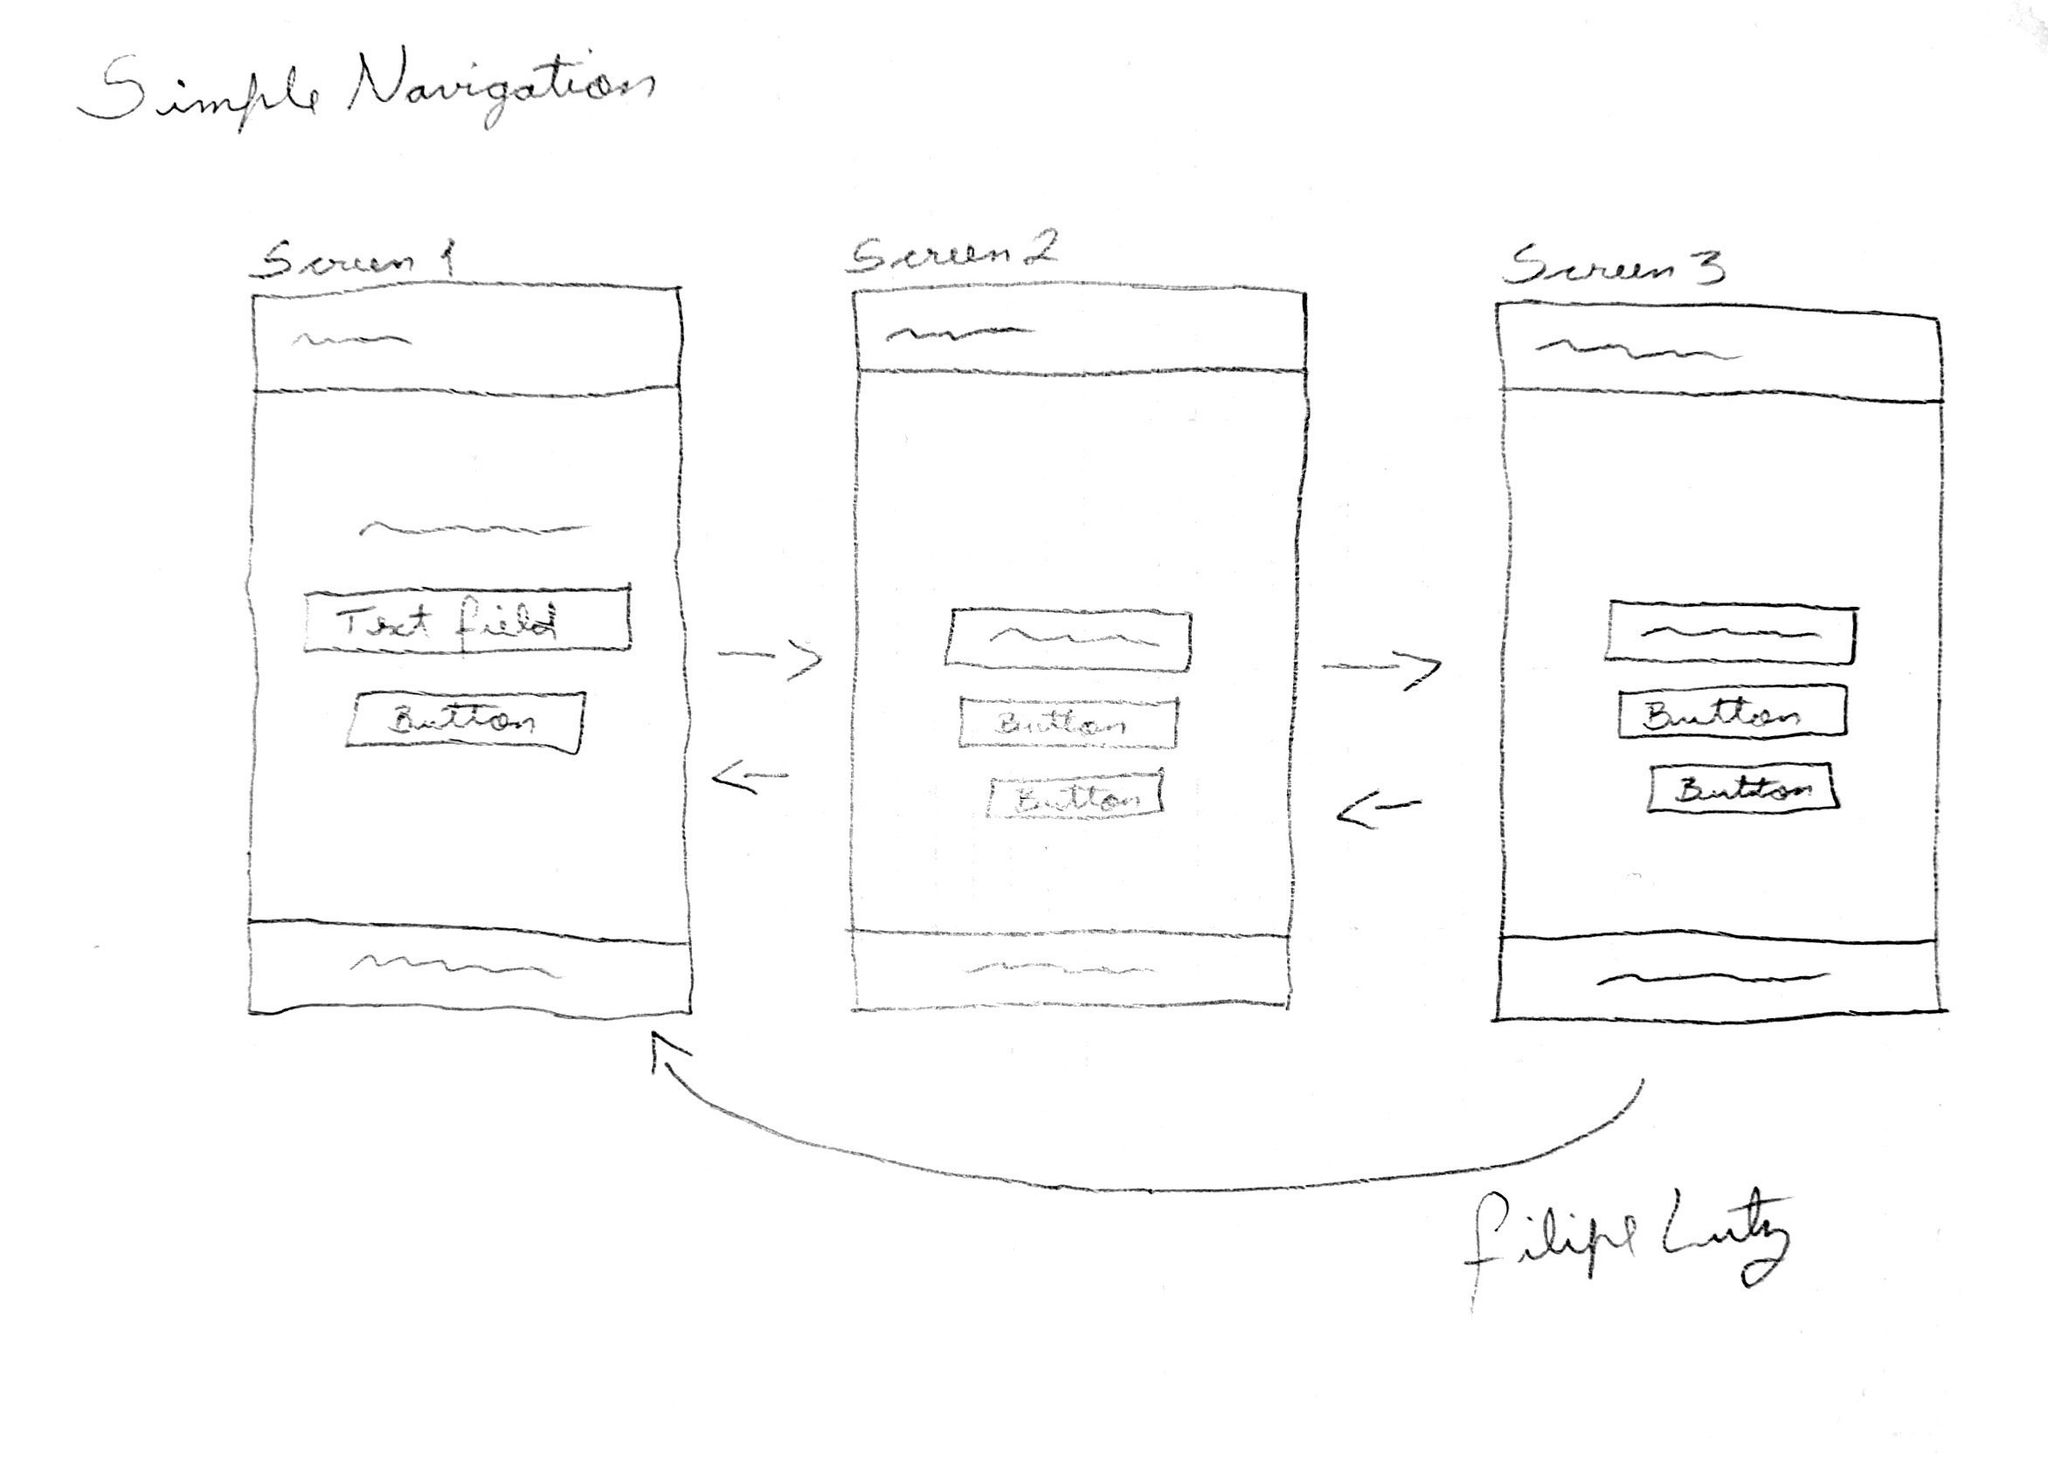 Simple Navigation
Screen 1
Text field
Button
Screen 2
Button
Button
Screen 3
Button
Button
Filipe Lutz